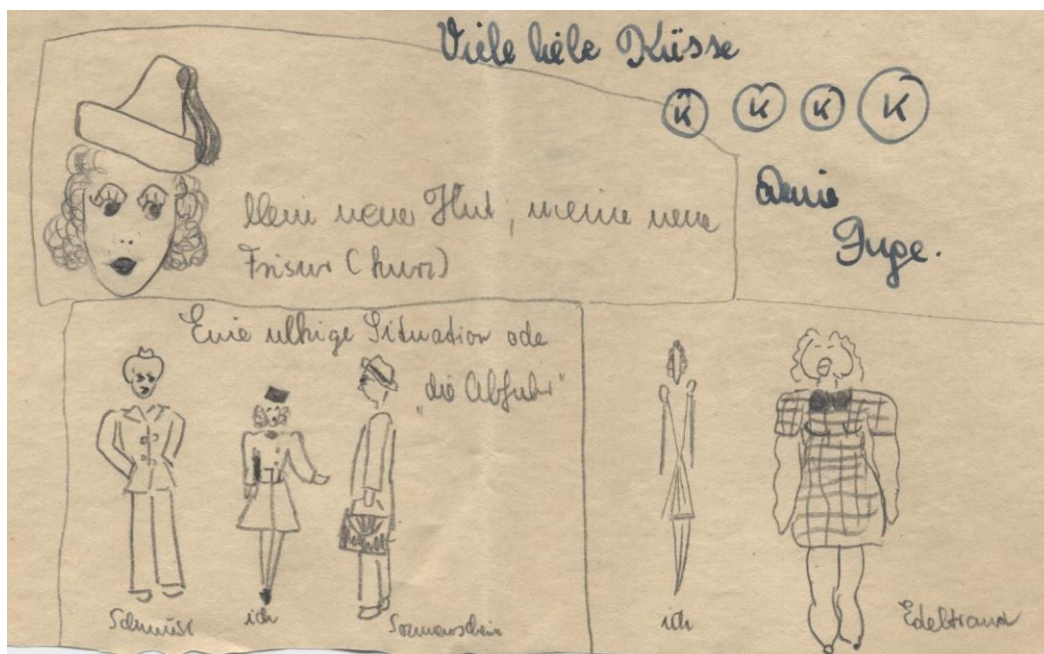 Viele liebe Küsse
K K K K
Deine
Inge.
Mein neuer Hut, meine neue
Frisur (kurz)
Eine ulkige Situation oder
"die Abfuhr"
ich
Sonnenschein
ich
Edeltraud